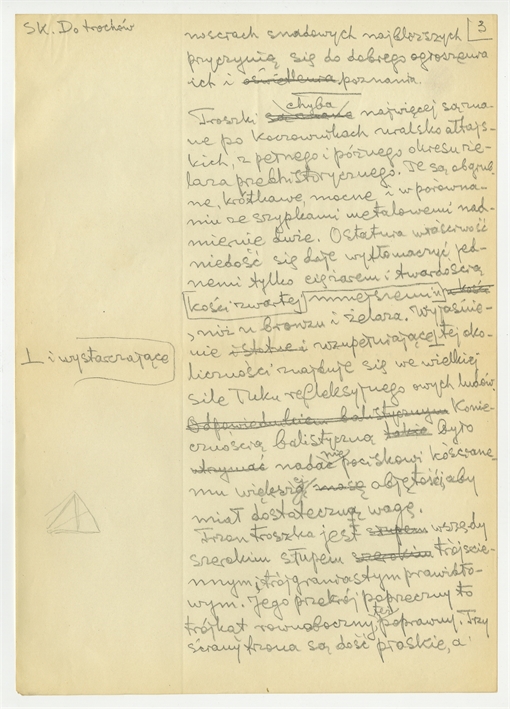 SK. Do trochów
3
noscrach snadowych najbliższych
przyczynią się do dobrego ogłoszenia
ich i oświetlenia poznania.
chyba
Troszki są znane najwięcej są zna-
ne po koczownikach uralsko ałtajs-
kich, z pełnego i późnego okresu że-
laza przedhistorycznego. Te są obgru-
ne, krótkawe, mocne, i w porówna-
niu ze szypkami metalowemi nad-
miernie duże. Ostatnia właściwość
niedość się daje wytłomaczyć jed-
nemi tylko ciężarem i twardością
kości zwartej mniejszemi
, niż u bronzu i żelaza. Wyjaśnie-
nie i wzupełniające tej oko-
i wystarczające
liczności znajduje się we wielkiej
sile łuku refleksyjnego owych ludów.
Odpowiedniciem balistycznym Konie-
cznością balistyczną było
utrzymać nadać pociskowi kościane-
mu większą masę objętość, aby
miał dostateczną wagę.
Trzon troszka jest słupem wszędy
szerokim słupem szerokim trójście-
nnym, trójgraniastym prawidło-
wym. Jego przekrój poprzeczny to
też
trójkąt równoboczny, poprawny. Trzy
ściany trzona są dość płaskie, a